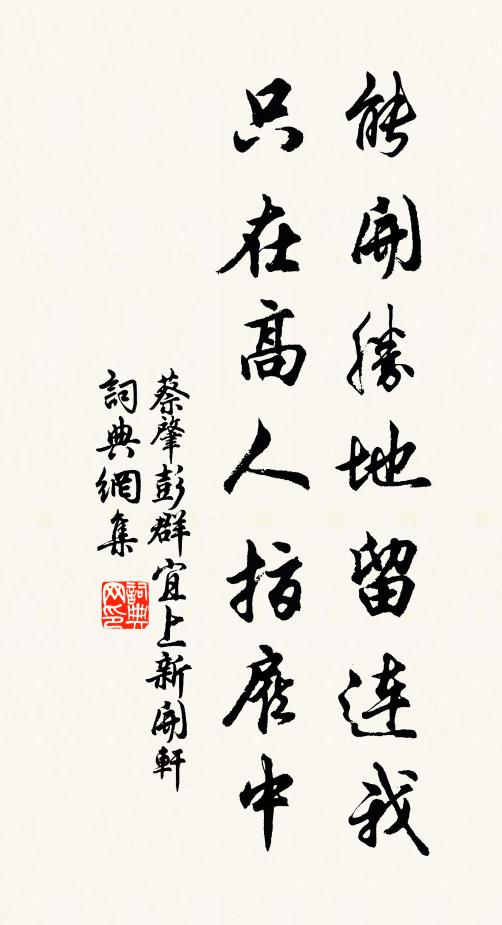 能開勝地留連我
只在高人指麾中
蔡肇彭群宜上新開軒
詞典網集
詞典网印